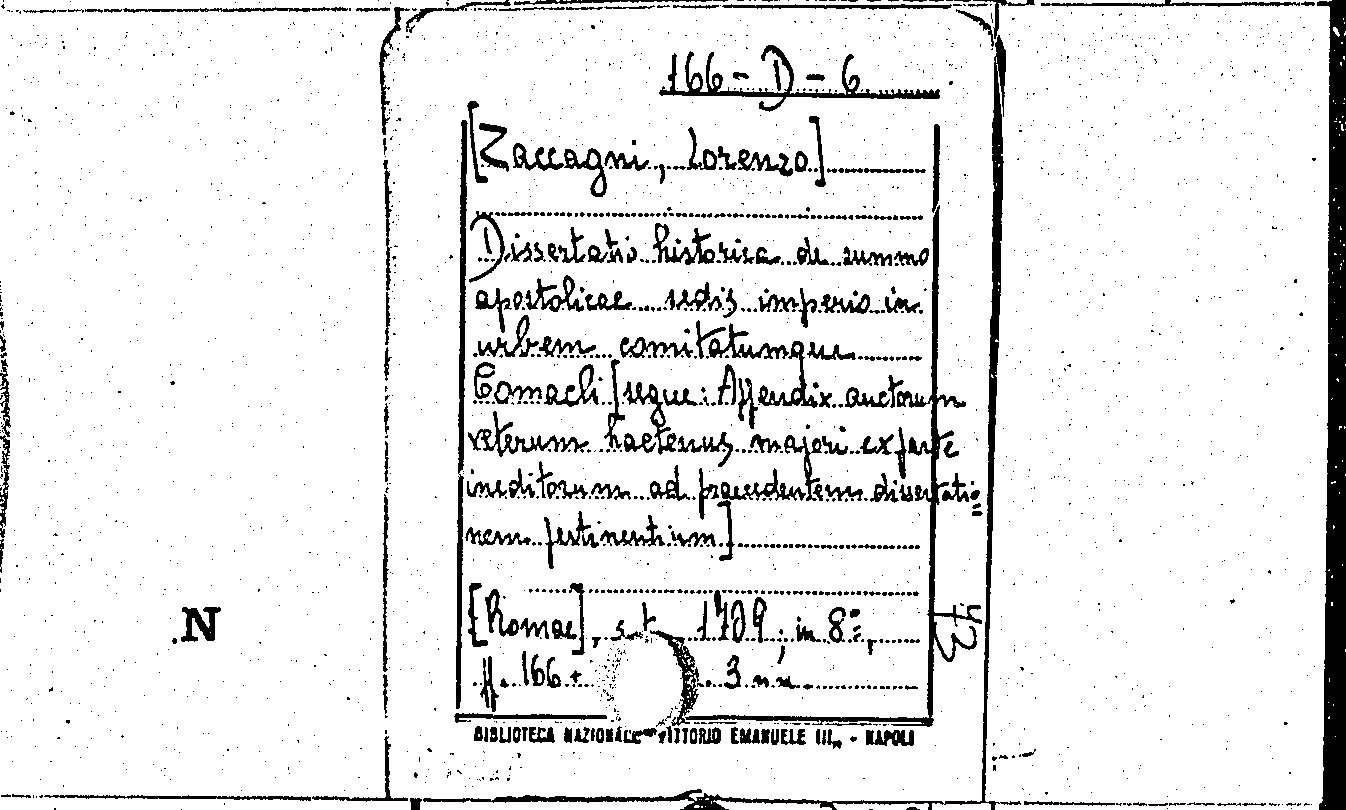 166 - D - 6
[Zaccagni, Lorenzo]
Dissertatio historica de summo
apostolicae sedis imperio in
urbem comitatumque
Comacli [segue: Appendix auctorum
veterum hactenus majori ex parte
ineditorum ad praecedentem dissertatio=
nem pertinentium]
[Romae], s. t. 1709; in 8º,
pp. 166 + . 3 nn.
43
.N
BIBLIOTECA NAZIONALE "VITTORIO EMANUELE III" - NAPOLI